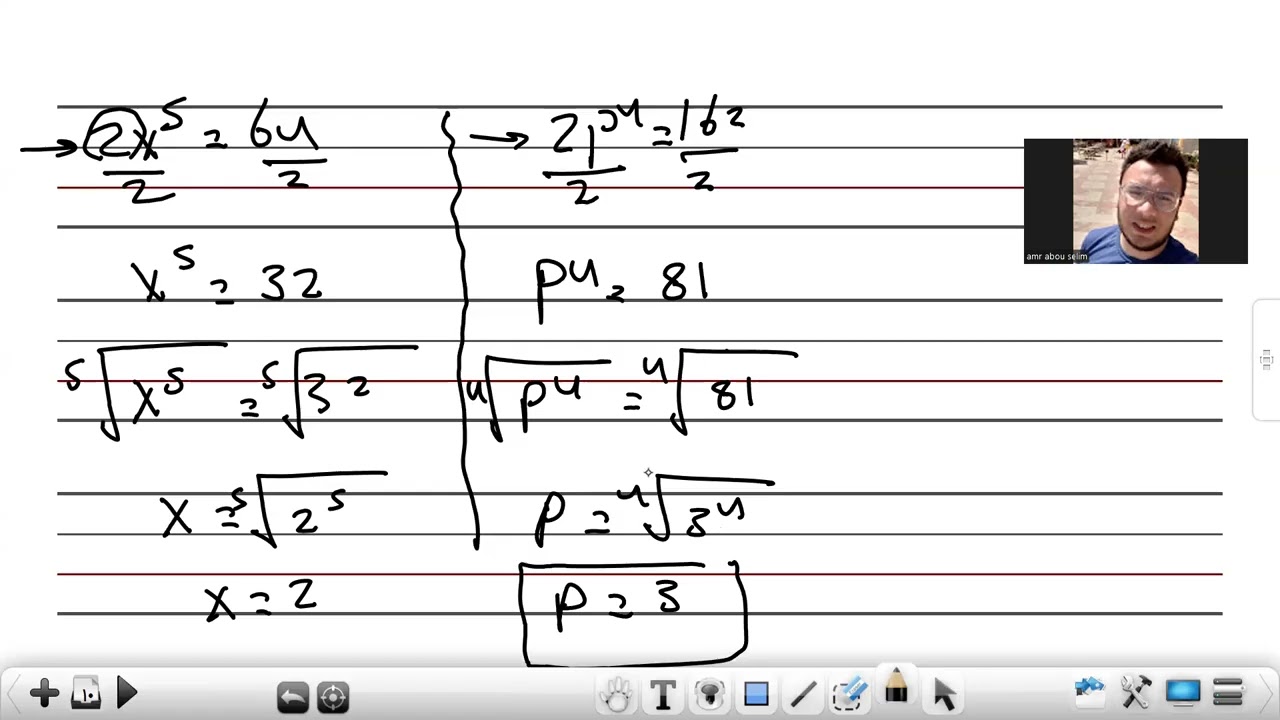 → 2x⁵ = 64
2 2
x⁵ = 32
⁵√x⁵ = ⁵√32
x = ⁵√2⁵
x = 2
→ 2p⁴ = 162
2 2
p⁴ = 81
⁴√p⁴ = ⁴√81
p = ⁴√3⁴
p = 3
amr abou selim
١٠
T